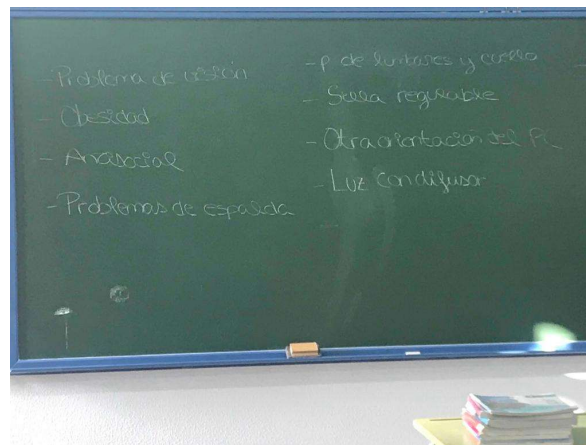 - Problema de visión
- Obesidad
- Anasocial
- Problemas de espalda
- P de lumbares y cuello
- Silla regulable
- Otra orientación del PC
- Luz con difusor